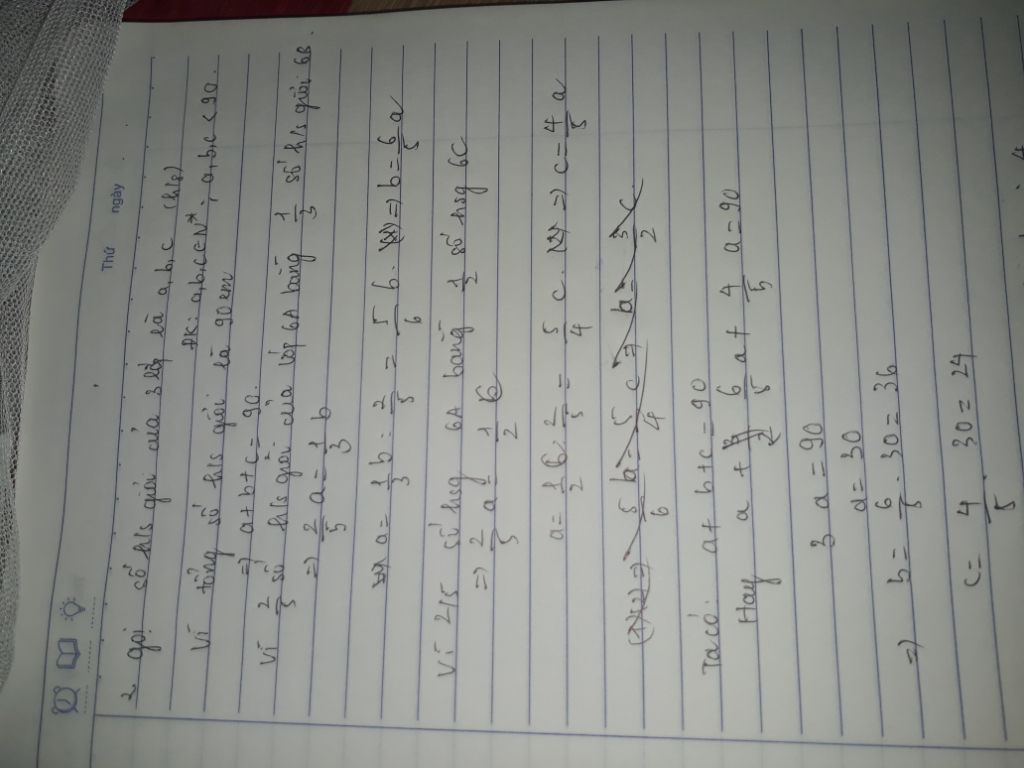 Thứ ngày
2. Gọi số h/s giỏi của 3 lớp là a, b, c (h/s)
ĐK: a, b, c ∈ N*; a, b, c < 90.
Vì tổng số h/s giỏi là 90 em
=> a + b + c = 90.
Vì 2/5 số h/s giỏi của lớp 6A bằng 1/3 số h/s giỏi 6B.
=> 2/5 a = 1/3 b
=> a = 1/3 b : 2/5 = 5/6 b. => b = 6/5 a
Vì 2/5 số hsg 6A bằng 1/2 số hsg 6C
=> 2/5 a = 1/2 C
a = 1/2 C : 2/5 = 5/4 c. => c = 4/5 a
5/6 b = 5/4 c => b = 3/2 c
Ta có: a + b + c = 90
Hay a + 6/5 a + 4/5 a = 90
3 a = 90
a = 30
=> b = 6/5 . 30 = 36
c = 4/5 . 30 = 24